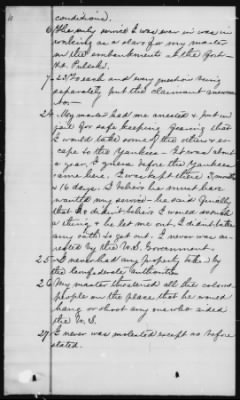 conditional.
6 The only service I was ever in was in
working as a slave for my master
on the embankments at the Fort
Ft. Pulaski.
7-23 To each and every question being
separately put the claimant answers
no—
24. My master had me arrested & put in
jail for safe keeping fearing that
I would take some of the others & es-
cape to the Yankees — It was about
a year, I guess before the Yankees
came here. I was kept there 3 months
& 16 days. I believe he must have
wanted my service — he said finally
that he didn't believe I would do such
a thing & he let me out. I didn't take
any oath to get out. I never was ar-
rested by the U.S. Government.
25 — I never had any property taken by
the Confederate authorities
26 My master threatened all the colored
people on the place that he would
hang or shoot any one who aided
the U.S.
27 I never was molested except as before
stated.